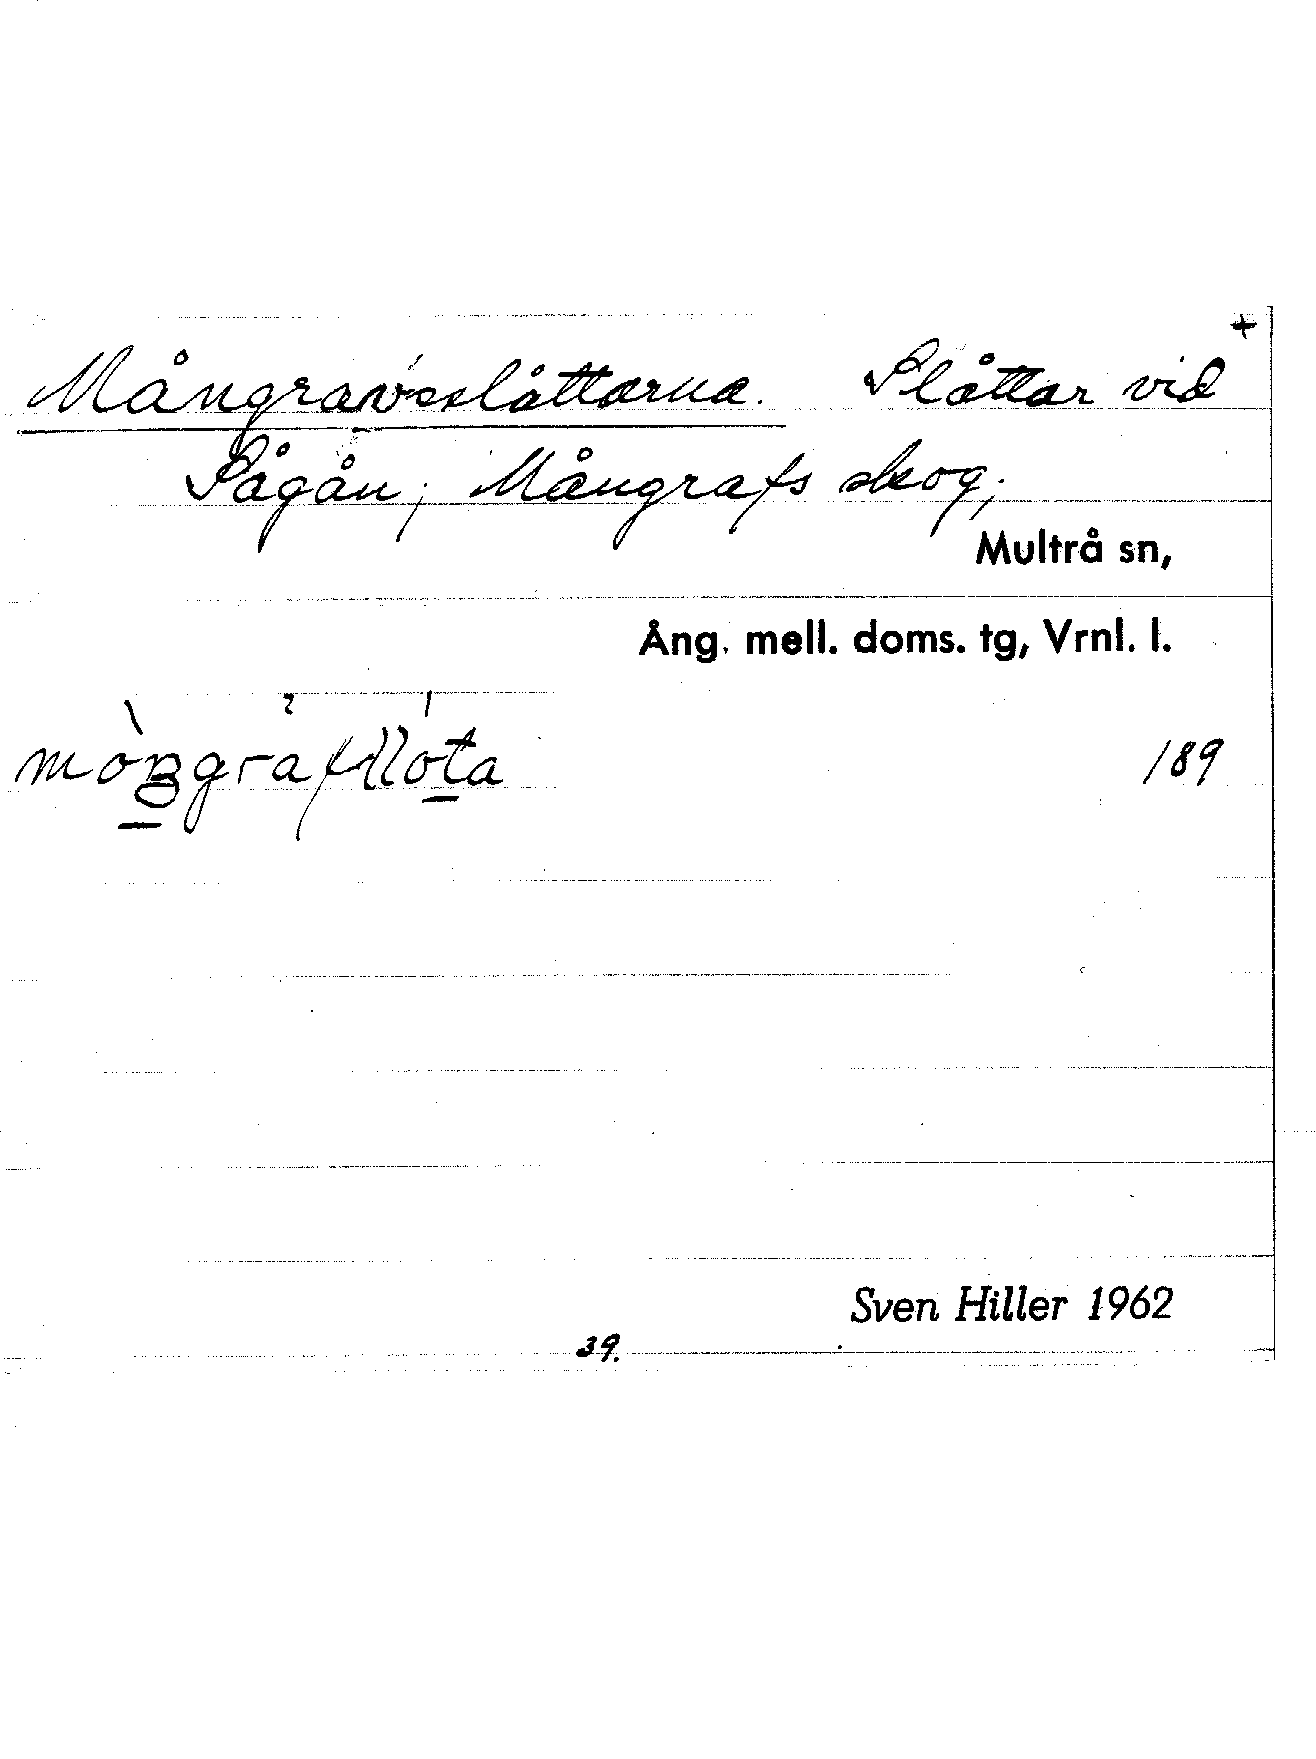 +
Mångravsslåttarna. Slåttar vid
Sågån; Mångrafs skog;
Multrå sn,
Ång. mell. doms. tg, Vrnl. l.
189
Sven Hiller 1962
39.